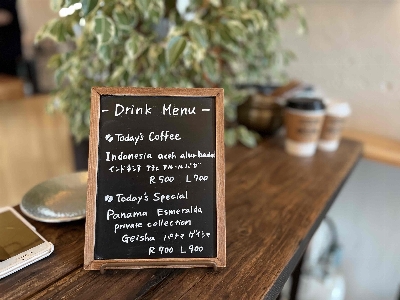 - Drink Menu -
Today's Coffee
Indonesia aceh
インドネシア アチェ
R 500 L 700
Today's Special
Panama Esmeralda
private collection
Geisha パナマ ゲイシャ
R 700 L 900